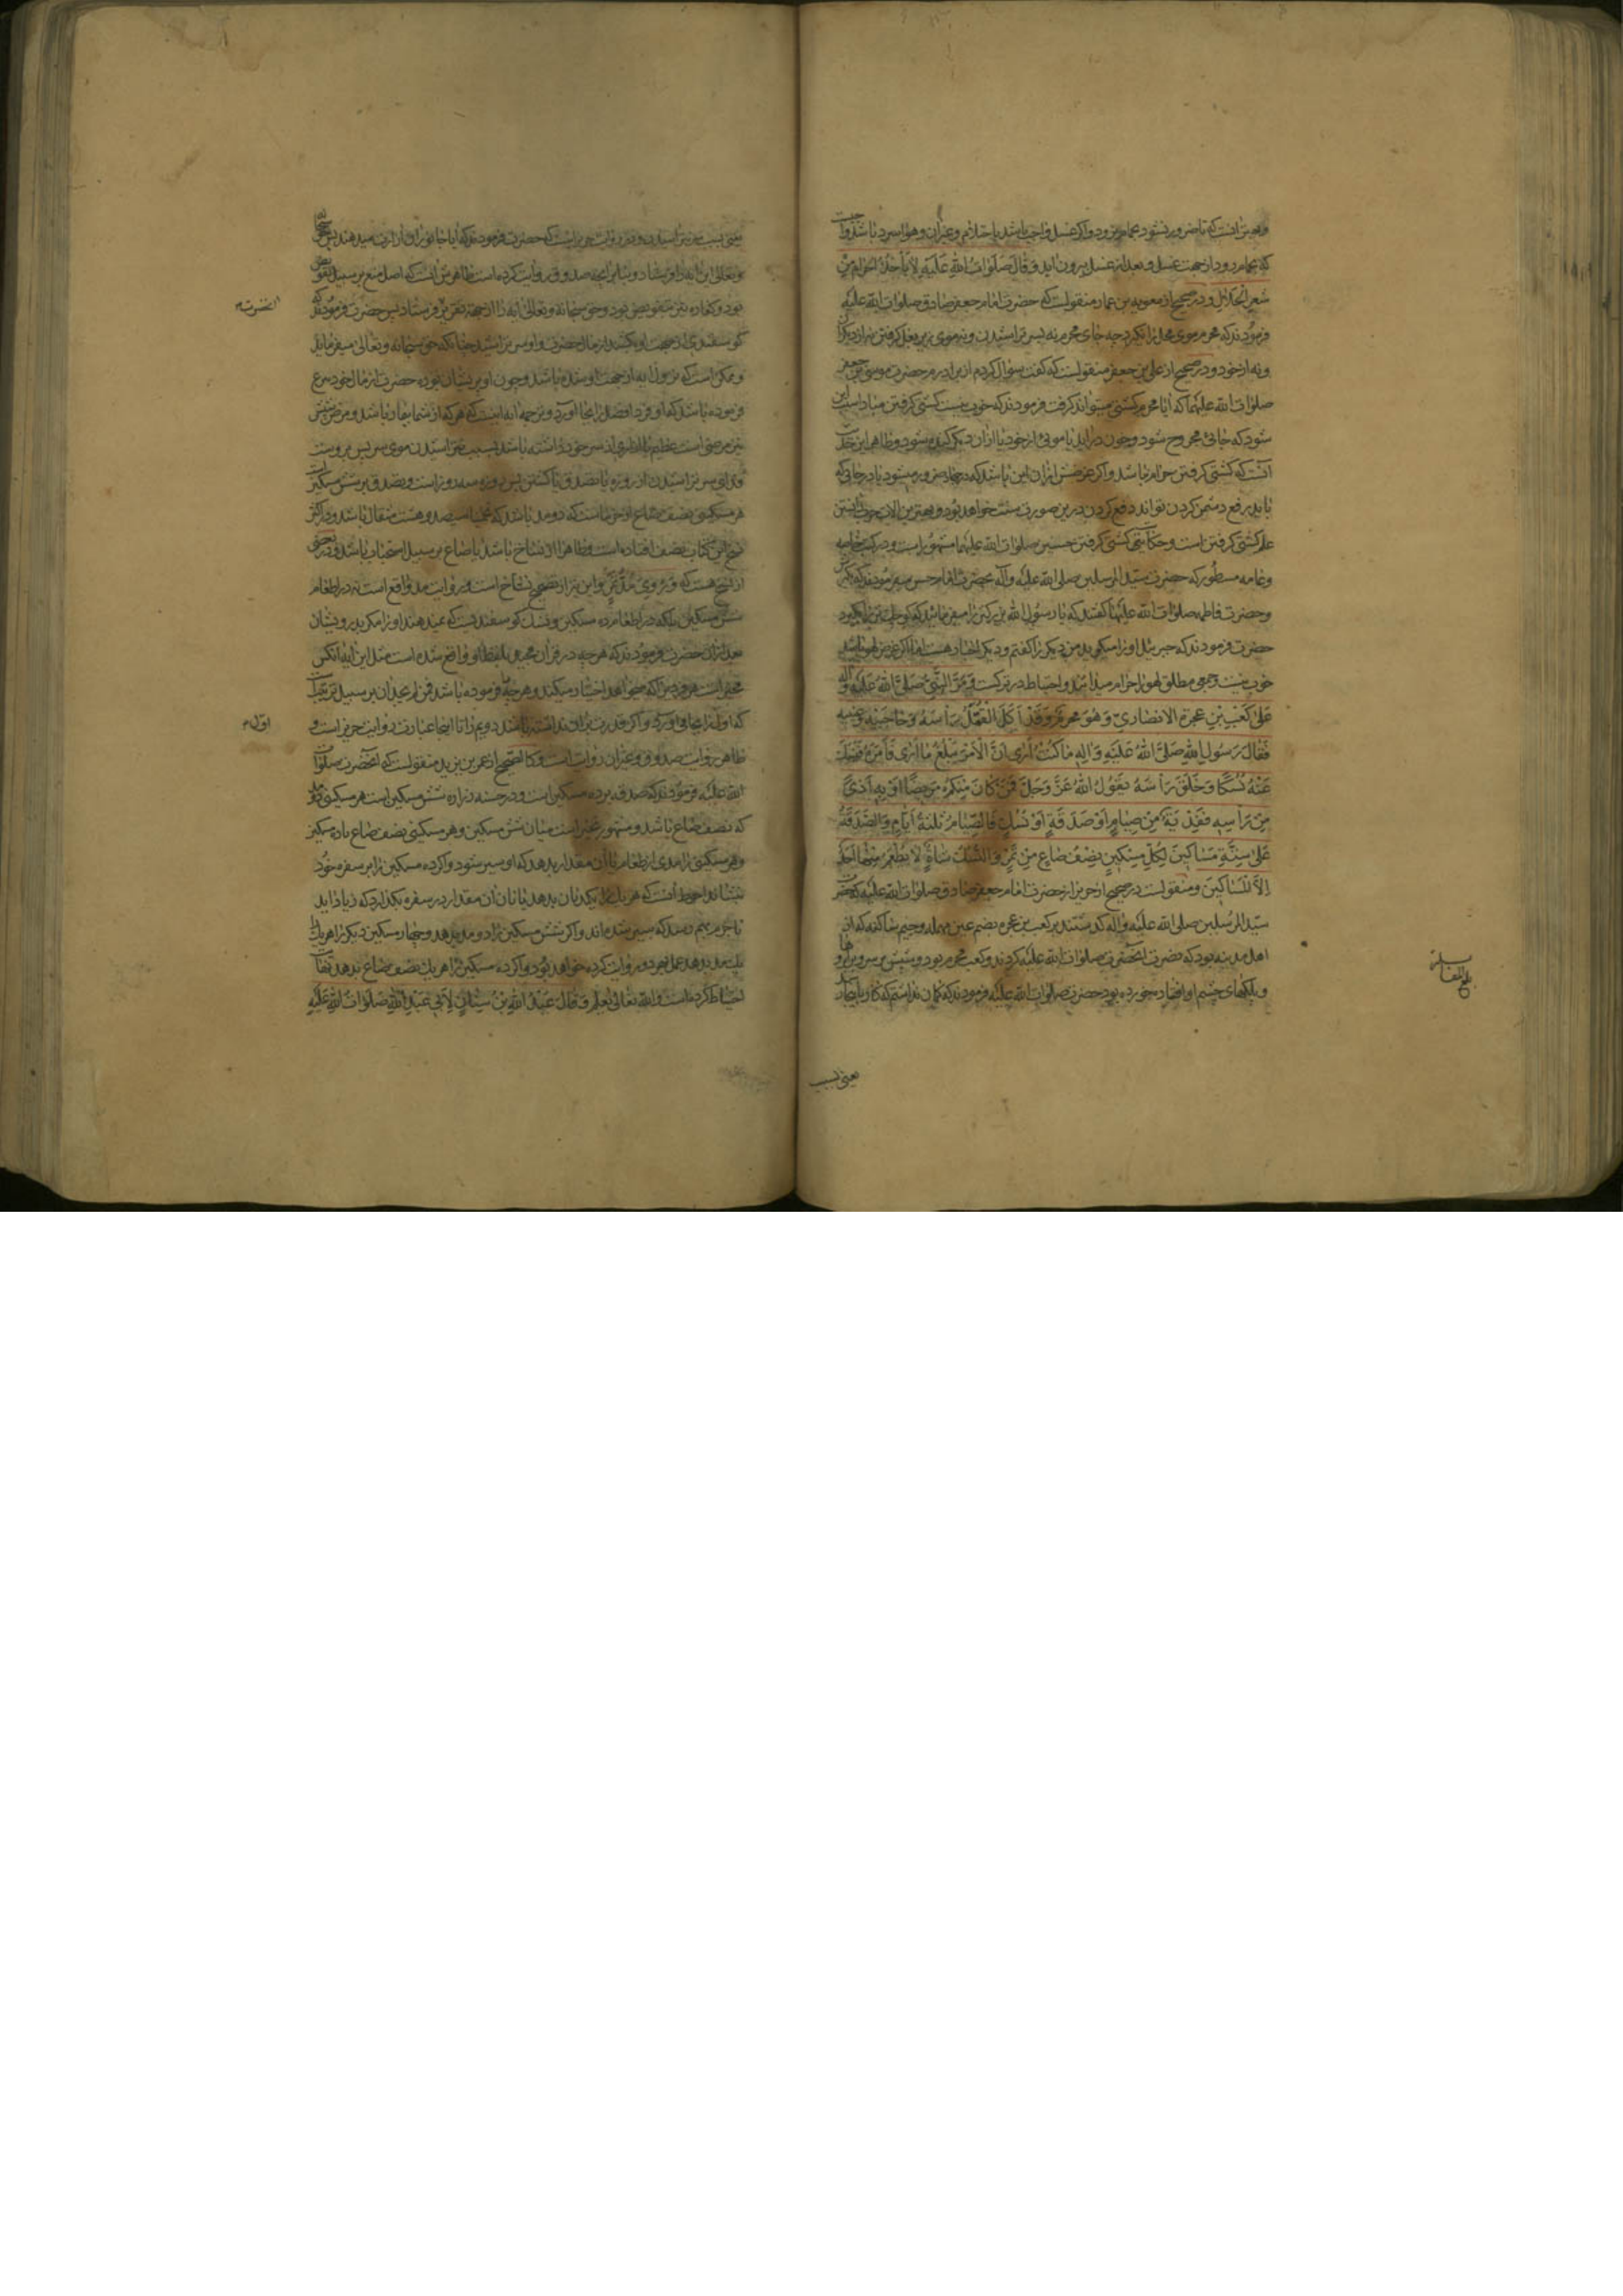 و بهتر آنست که تا ضرور نشود بحمام نرود و اگر غسل واجب باشد باحتلام و غیر آن و هوا سرد باشد
که بحمام رود از جهت غسل و بعد از غسل بیرون آید و قال صلوات الله علیه لا یأخذ الحرام من
شعر الحلال و در صحیح از معویه بن عمار منقولست که حضرت امام جعفر صادق صلوات الله علیه
فرمودند که محرم موی محل را نگیرد چه جای محرم نه بسر تراشیدن و نه موی زیر بغل گرفتن نه از دیگران
و نه از خود و در صحیح از علی بن جعفر منقولست که گفت سؤال کردم از برادرم حضرت موسی بن جعفر
صلوات الله علیهما که آیا محرم کشتی میتواند گرفت فرمودند که خوب نیست کشتی گرفتن مبادا سبب این
شود که جائی مجروح شود و خون درآید یا موئی از خود یا از آن دیگر کنده شود و ظاهر این حدیث
آنست که کشتی گرفتن حرام نباشد و اگر غرضش از آن این باشد که در جهاد ضرور میشود یا در جائی که
باید رفع دشمن کردن تواند دفع کردن درین صورت سنت خواهد بود و بهترین آلات حرب دانستن
علم کشتی گرفتن است و حکایت کشتی گرفتن حسنین صلوات الله علیهما مشهور است و در کتب خاصه
و عامه مسطور که حضرت سید المرسلین صلی الله علیه و آله بحضرت امام حسن میفرمودند که بگیرش
و حضرت فاطمه صلوات الله علیها گفتند که یا رسول الله بزرگتر را میفرمائید که کوچکتر را بگیرد
حضرت فرمودند که جبرئیل او را میگوید من دیگر را گفتم و دیگر اخبار هست اما اگر غرض لهو باشد
خوب نیست و جمعی مطلق لهو را حرام میدانند و احتیاط در ترکست و مر النبی صلی الله علیه و آله
علی کعب بن عجرة الانصاری و هو محرم و قد اکل القمل رأسه و حاجبیه و عینیه
فقال رسول الله صلی الله علیه و اله ما کنت أری ان الامر یبلغ ما أری فأمره فنسک
عنه نسکا و حلق رأسه یقول الله عز و جل فمن کان منکم مریضا او به أذی
من رأسه ففدیة من صیام او صدقة او نسک فالصیام ثلثة ایام و الصدقة
علی ستة مساکین لکل مسکین نصف صاع من تمر و النسک شاة لا یطعم منها احد
الا المساکین و منقولست در صحیح از حریز از حضرت امام جعفر صادق صلوات الله علیه که حضرت
سید المرسلین صلی الله علیه و اله گذشتند بر کعب بن عجره بضم عین مهمله و جیم ساکنه که از
اهل مدینه بود که نصرت آنحضرت صلوات الله علیه کردند و کعب محرم بود و شپش بر سر و بر ابروها و
و پلکهای چشم او افتاده خورده بود حضرت صلوات الله علیه فرمودند که گمان نداشتم که کار باینجا رسد
یعنی بسبب
بلغ مقابلة
یعنی بسبب سر تراشیدن و در روایت حریز است که حضرت فرمودند که آیا جانوران آزارت میدهند پس حق سبحانه
و تعالی این آیه را فرستاد و بنابر آنچه صدوق روایت کرده است ظاهرش آنست که اصل منع بر سبیل تفویض
بود و کفاره نیز بتفویض بود و حق سبحانه و تعالی آیه را از جهة تقریر فرستاد پس حضرت فرمودند که
گوسفندی از جهت او بکشند از مال حضرت و او سر تراشید چنانکه حق سبحانه و تعالی میفرماید
و ممکن است که نزول آیه از جهت او شده باشد و چون او پریشان بوده حضرت از مال خود تبرع
فرموده باشد که او فرد افضل را بجا آورد و ترجمه آیه اینست که هر که از شما بیمار باشد و مرض شپش
نیز مرضی است عظیم یا آزاری از سر خود داشته باشد بسبب نتراشیدن موی سر پس بر اوست
فدای سر تراشیدن از روزه یا تصدق یا کشتن پس روزه سه روز است و تصدق بر شش مسکین است
هر مسکینی نصف صاع از خرماست که دو مد باشد که تخمینا ششصد و هشت مثقال باشد و در اکثر
نسخ این کتاب نصف افتاده است و ظاهرا از نساخ باشد یا صاع بر سبیل استحباب باشد و در بعضی
از نسخ هست که و روی مد تمر و این نیز از تصحیح نساخ است و روایت مد واقع است نه در اطعام
شش مسکین بلکه در اطعام ده مسکین و نسک گوسفندیست که نمیدهند او را مگر بدرویشان
بعد از آن حضرت فرمودند که هر چه در قرآن مجید بلفظ او واقع شده است مثل این آیه آنکس
مخیر است هر فردی را که میخواهد اختیار میکند و هر چه فرموده باشد فمن لم یجد آن بر سبیل ترتیب است
که اول را بجا می آورد و اگر قدرت بر آن نداشته باشد دویم را تا اینجا عبارت روایت حریز است و
ظاهر روایت صدوق و غیر آن روایت است و کالصحیح از عمر بن یزید منقولست که آنحضرت صلوات
الله علیه فرمودند که صدقه بر ده مسکین است و در حسنه زراره شش مسکین است هر مسکینی دو مد
که نصف صاع باشد و مشهور تخییر است میان شش مسکین و هر مسکینی نصف صاع یا ده مسکین
و هر مسکینی را مدی از طعام یا آن مقدار بدهد که او سیر شود و اگر ده مسکین را بر سفره خود
بنشاند احوط آنست که هر یک را یک نان بدهد یا نان آن مقدار در سفره بگذارد که زیاد آید
تا جزم بهم رسد که سیر شده اند و اگر شش مسکین را دو مد بدهد و چهار مسکین دیگر را هر یک را
یک مد بدهد عمل بهر دو روایت کرده خواهد بود و اگر ده مسکین را هر یک نصف صاع بدهد نهایت
احتیاط کرده است و الله تعالی یعلم و قال عبد الله بن سنان لابی عبد الله صلوات الله علیه
آنحضرت
اول